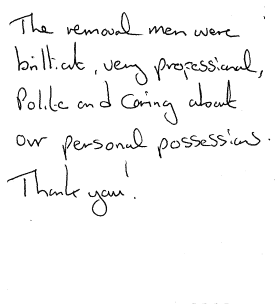 The removal men were
brilliant, very professional,
Polite and Caring about
our personal possessions.
Thank you!